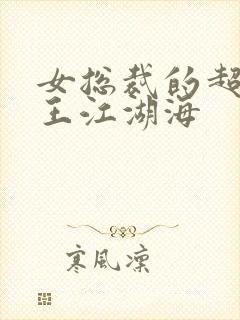 女总裁的超
王江湖海
寒风凛